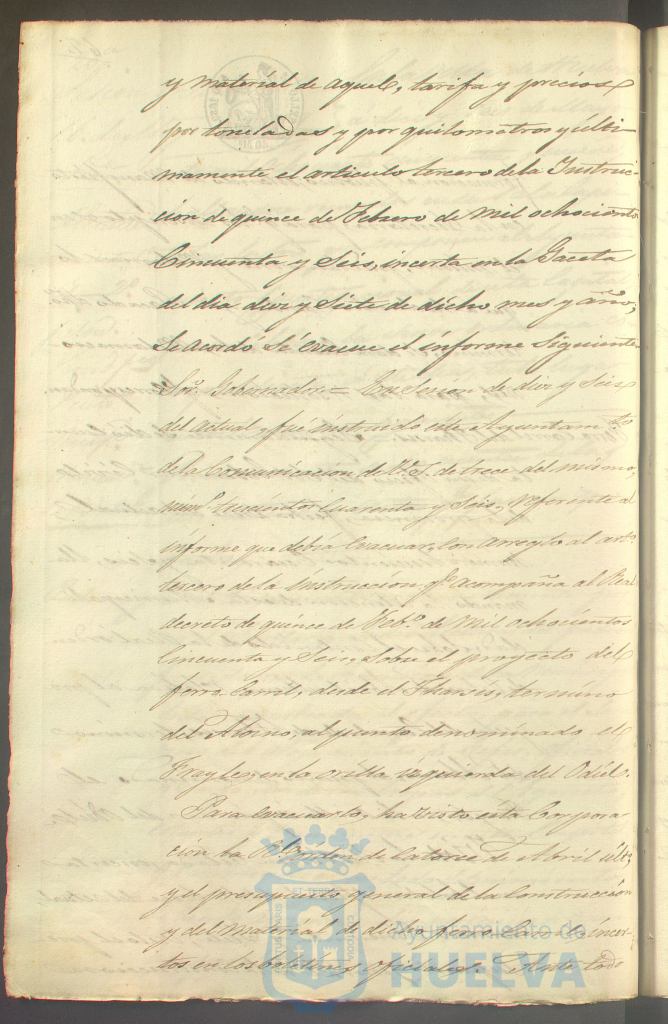 y material de aquel, tarifa y precios
por toneladas y por quilometros y últi-
mamente el articulo tercero de la Instruc-
cion de quince de Febrero de mil ochocientos
Cincuenta y Seis, incerta en la Gaceta
del dia diez y Siete de dicho mes y año,
Se acordó Sé evacue el informe Siguiente
Sor. Gobernador = En Sesion de diez y Seis
del actual, fué instruido éste Ayuntamto.
de la Comunicacion de V. S. de trece del mismo,
númo. trescientos Cuarenta y Seis, referente al
informe que debia Evacuar, con arreglo al arto.
tercero de la instruccion qe. acompaña al Real
decreto de quince de Febo. de mil ochocientos
Cincuenta y Seis, Sobre el proyecto del
ferro Carril, desde el Tharsis, termino
del Alosno, al punto denominado el
Frayle, en la orilla izquierda del Odiel.
Para evacuarlo, ha visto ésta Corpora-
ción la Rl. orden de Catorce de Abril últo.,
y el presupuesto general de la Construcción
y del Material de dicho ferro Carril incer-
tos en los boletines oficiales. Ante todo
Ayuntamiento de
HUELVA